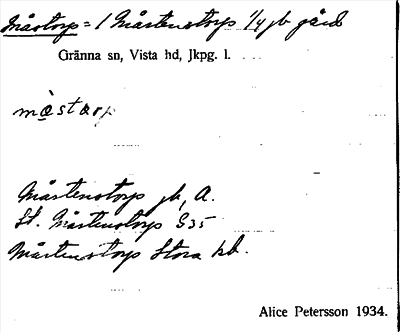 Måstorp = 1 Mårtenstorp 1/4 jb gård
Gränna sn, Vista hd, Jkpg. l.
må̀star̥p
Mårtenstorp jb, A.
St. Mårtenstorp G35
Mårtenstorp Stora kb.
Alice Petersson 1934.